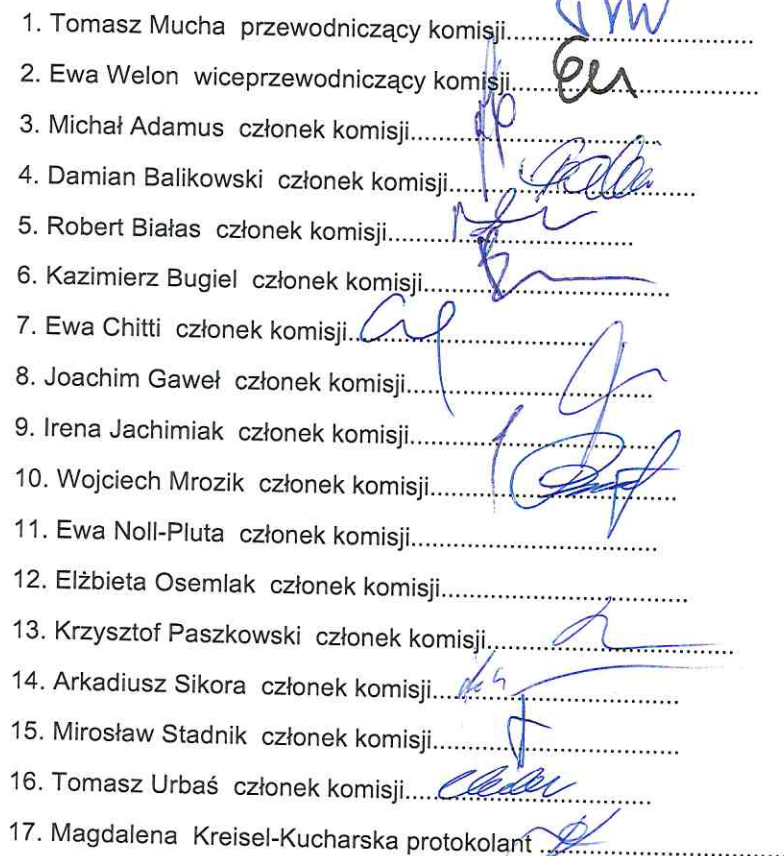 1. Tomasz Mucha przewodniczący komisji
2. Ewa Welon wiceprzewodniczący komisji
3. Michał Adamus członek komisji
4. Damian Balikowski członek komisji
5. Robert Białas członek komisji
6. Kazimierz Bugiel członek komisji
7. Ewa Chitti członek komisji
8. Joachim Gaweł członek komisji
9. Irena Jachimiak członek komisji
10. Wojciech Mrozik członek komisji
11. Ewa Noll-Pluta członek komisji
12. Elżbieta Osemlak członek komisji
13. Krzysztof Paszkowski członek komisji
14. Arkadiusz Sikora członek komisji
15. Mirosław Stadnik członek komisji
16. Tomasz Urbaś członek komisji
17. Magdalena Kreisel-Kucharska protokolant